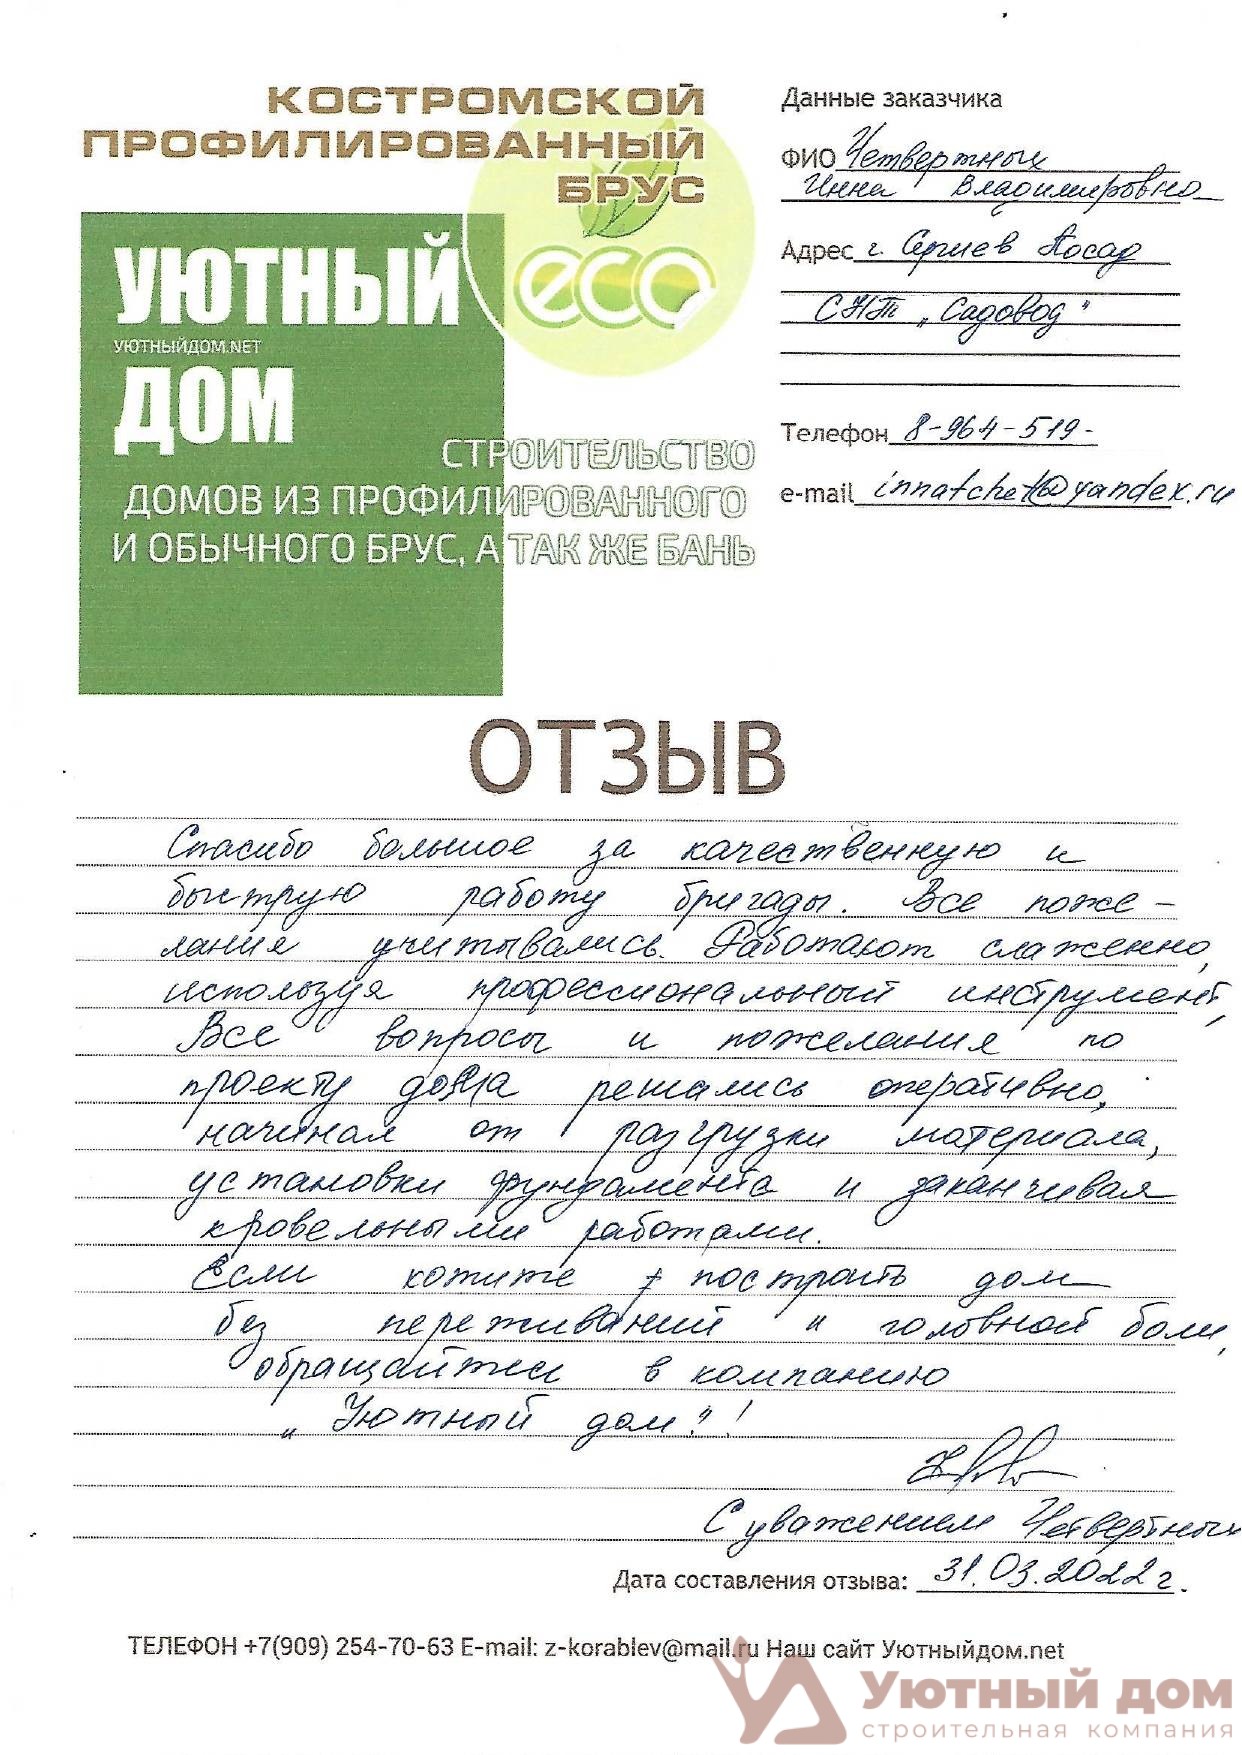 КОСТРОМСКОЙ
ПРОФИЛИРОВАННЫЙ
БРУС
УЮТНЫЙ
УЮТНЫЙДОМ.NET
ДОМ
eco
СТРОИТЕЛЬСТВО
ДОМОВ ИЗ ПРОФИЛИРОВАННОГО
И ОБЫЧНОГО БРУС, А ТАК ЖЕ БАНЬ
Данные заказчика
ФИО Четвертных
Инна Владимировна
Адрес г. Сергиев Посад
СНТ „Садовод"
Телефон 8-964-519-
e-mail @yandex.ru
ОТЗЫВ
Спасибо большое за качественную и
быструю работу бригады. Все поже-
лания учитывались. Работают слаженно,
используя профессиональный инструмент,
Все вопросы и пожелания по
проекту дома решались оперативно,
начиная от разгрузки материала,
установки фундамента и заканчивая
кровельными работами.
Если хотите построить дом
без переживаний и головной боли,
обращайтесь в компанию
„Уютный дом"!
С уважением Четвертных
Дата составления отзыва: 31.03.2022 г.
ТЕЛЕФОН +7(909) 254-70-63 E-mail: z-korablev@mail.ru Наш сайт Уютныйдом.net
Уютный дом
строительная компания